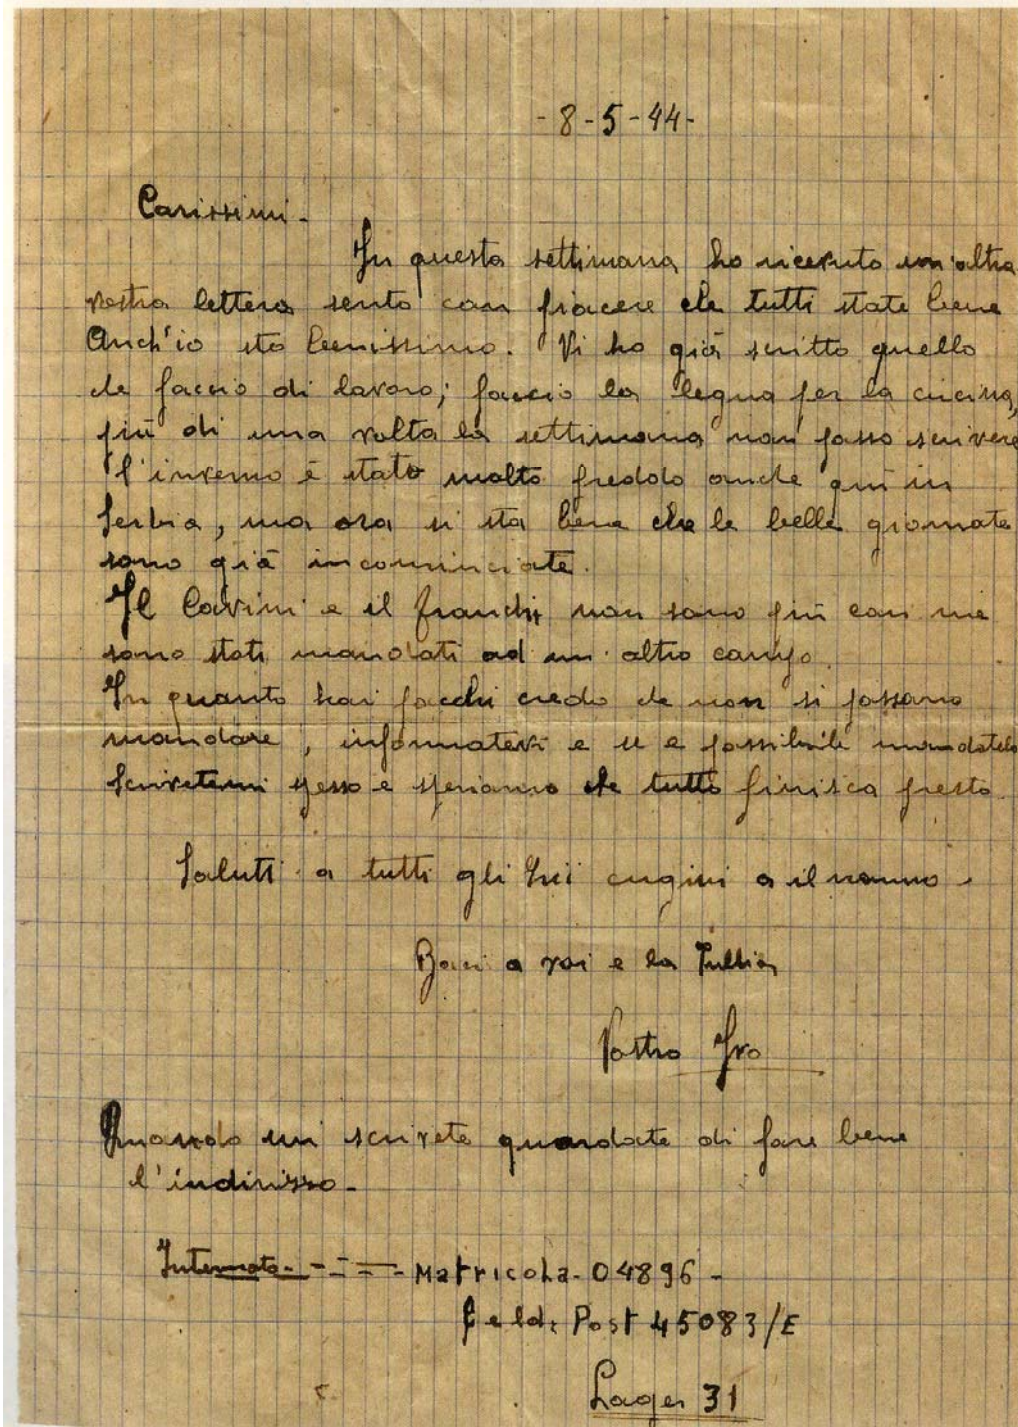 -8-5-44-
Carissimi-
In questa settimana ho ricevuto un'altra
vostra lettera sento con piacere che tutti state bene
Anch'io sto benissimo. Vi ho già scritto quello
che faccio di lavoro; faccio la legna per la cucina,
più di una volta la settimana non posso scrivere
l'inverno è stato molto freddo anche qui in
Serbia, ma ora si sta bene che le belle giornate
sono già incominciate.
Il Cavini e il Franchi non sono più con me
sono stati mandati ad un altro campo.
In quanto hai pacchi credo che non si possano
mandare, informatevi e se e possibile mandatelo
Scrivetemi spesso e speriamo che tutto finisca presto.
Saluti a tutti gli zii cugini a il nonno-
Baci a voi e la Tullia
Vostro Ivo
Quando mi scrivete guardate di fare bene
l'indirizzo-
Internato- - - = - Matricola-04896-
Feld: Post 45083/E
Lager 31